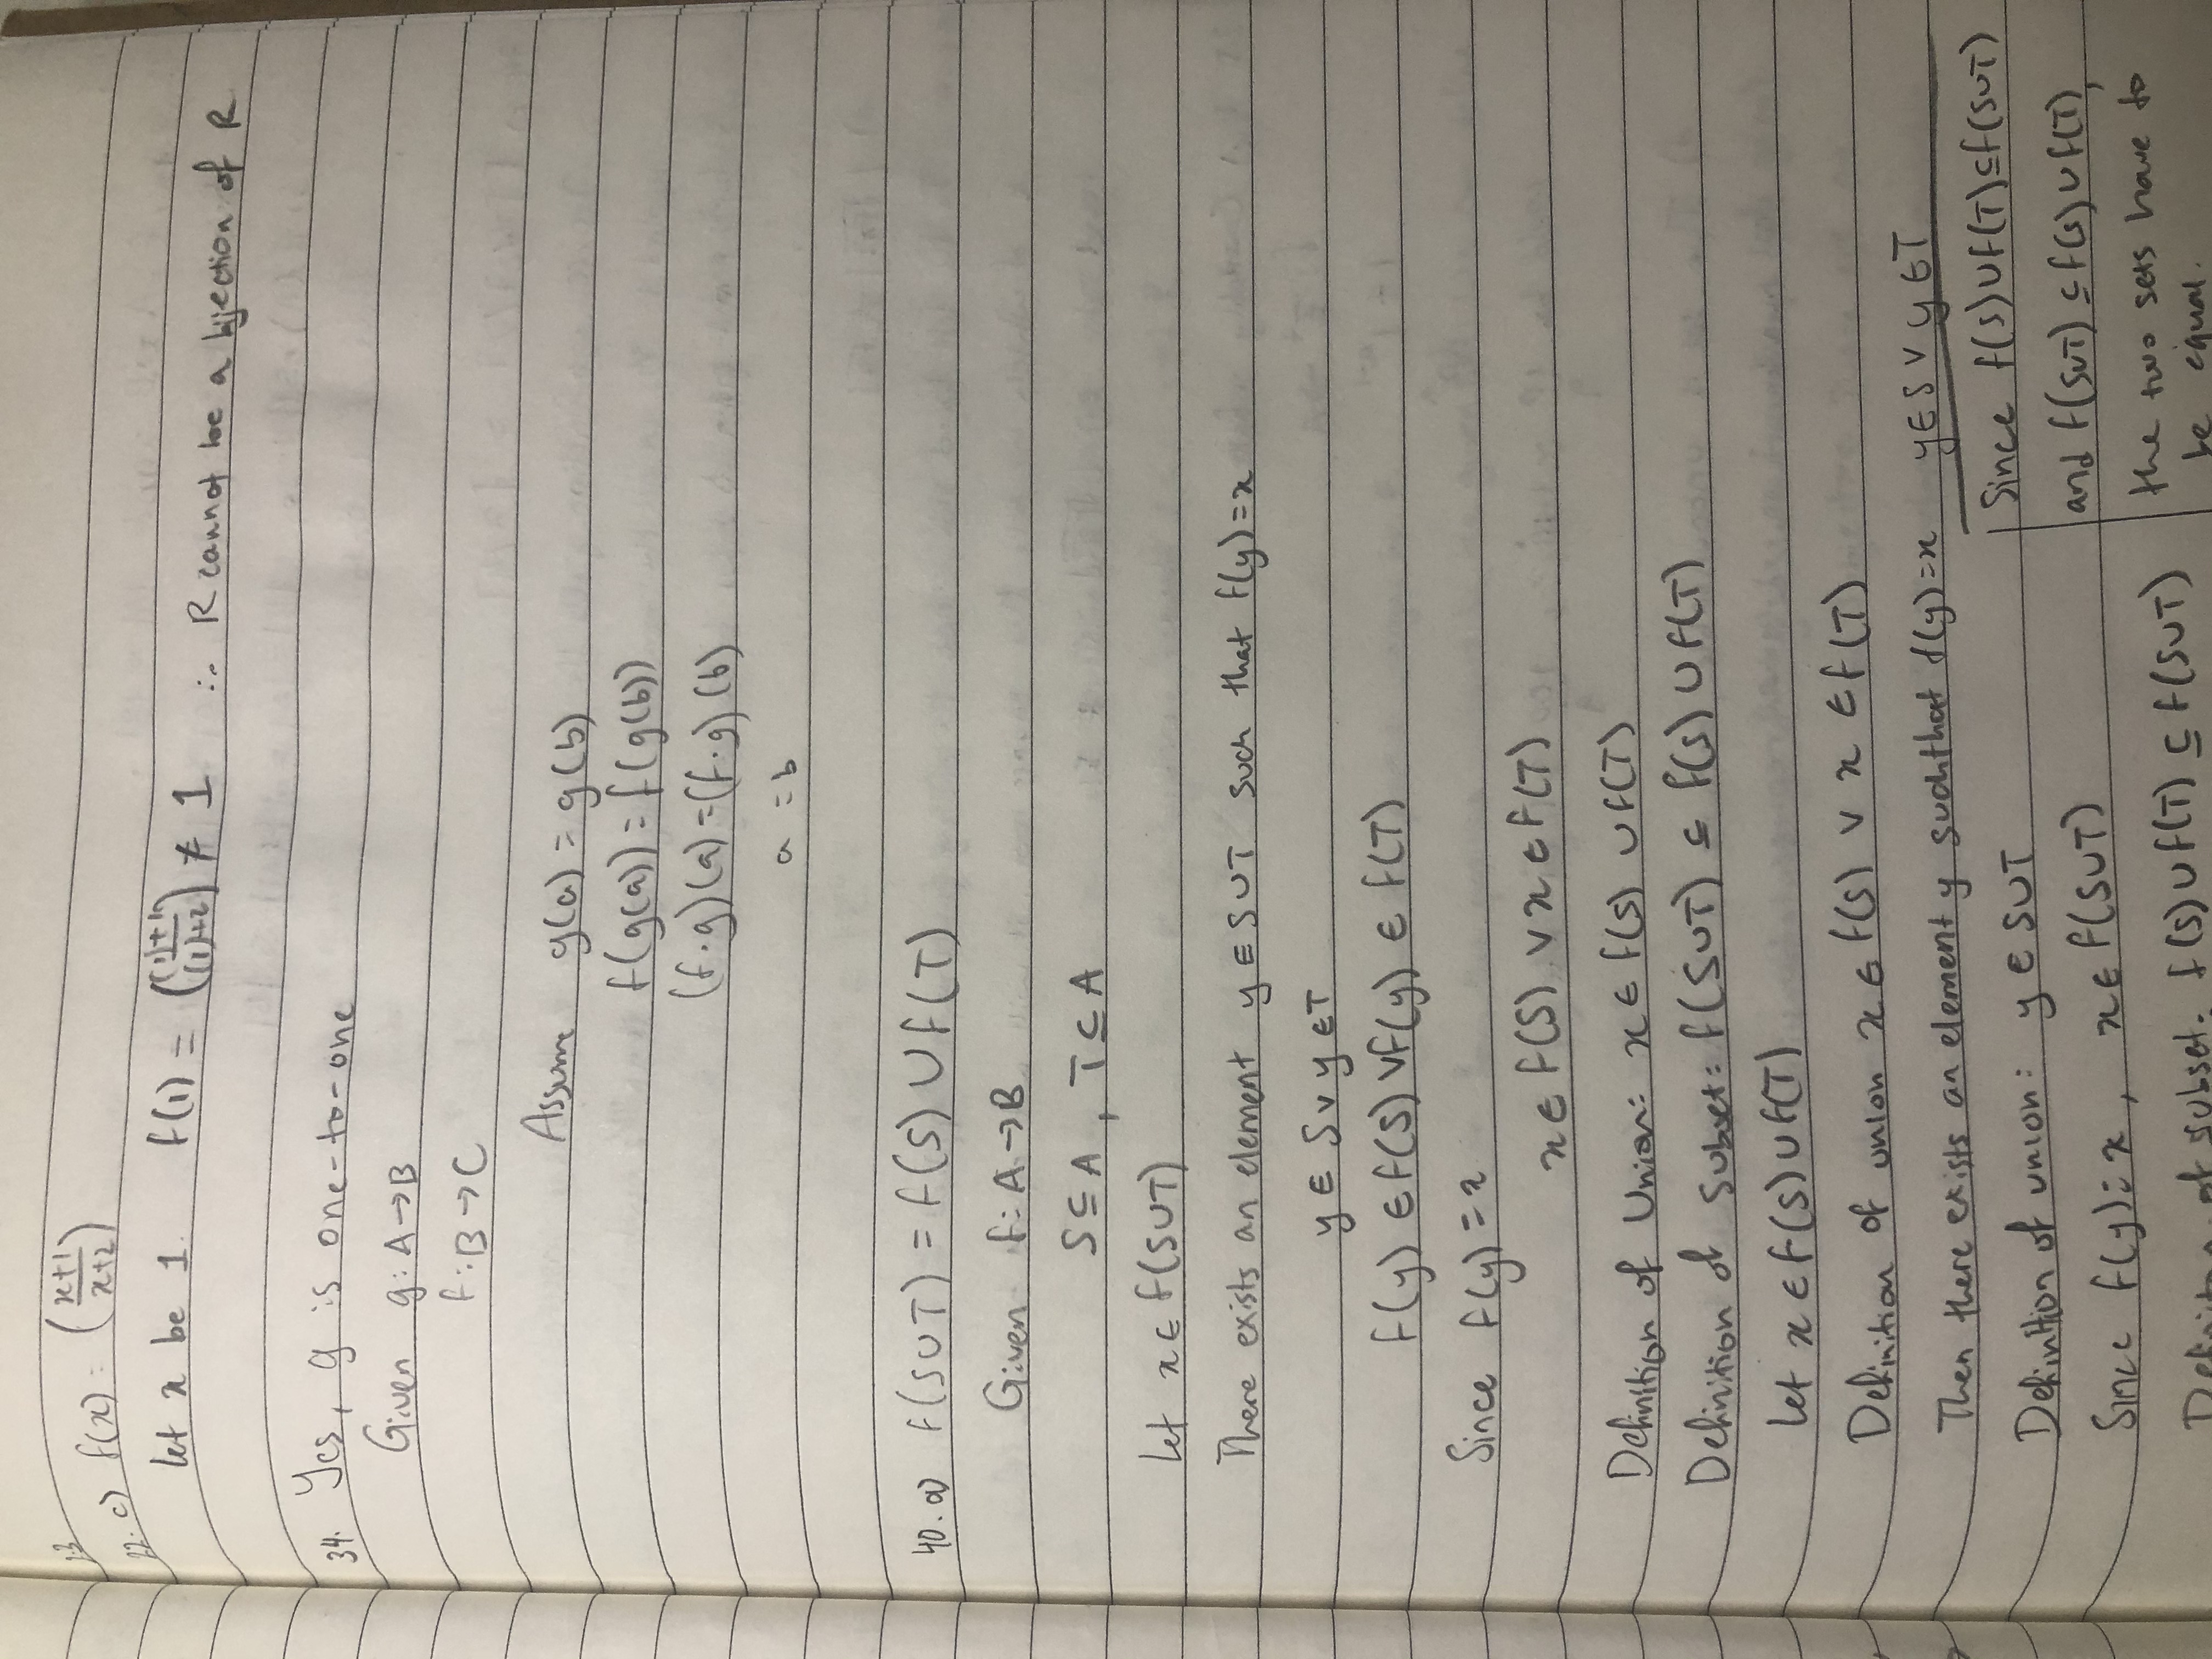 2.3
22. c) f(x) = (x+1/x+2)
Let x be 1. f(1) = ((1)+1/(1)+2) ≠ 1 ∴ R cannot be a bijection of R
34. Yes, g is one-to-one
Given g: A→B
f: B→C
Assume g(a) = g(b)
f(g(a)) = f(g(b))
(f·g)(a) = (f·g)(b)
a = b
40. a) f(S∪T) = f(S) ∪ f(T)
Given f: A→B
S⊆A, T⊆A
Let x∈f(S∪T)
There exists an element y∈S∪T such that f(y)=x
y∈S∨y∈T
f(y)∈f(S)∨f(y)∈f(T)
Since f(y)=x
x∈f(S)∨x∈f(T)
Definition of Union: x∈f(S)∪f(T)
Definition of subset: f(S∪T)⊆f(S)∪f(T)
Let x∈f(S)∪f(T)
Definition of union x∈f(S) ∨ x∈f(T)
Then there exists an element y such that f(y)=x y∈S∨y∈T
Definition of union: y∈S∪T
Since f(y)=x, x∈f(S∪T)
Definiton of subset. f(S)∪f(T)⊆f(S∪T)
Since f(S)∪f(T)⊆f(S∪T)
and f(S∪T)⊆f(S)∪f(T),
the two sets have to
be equal.